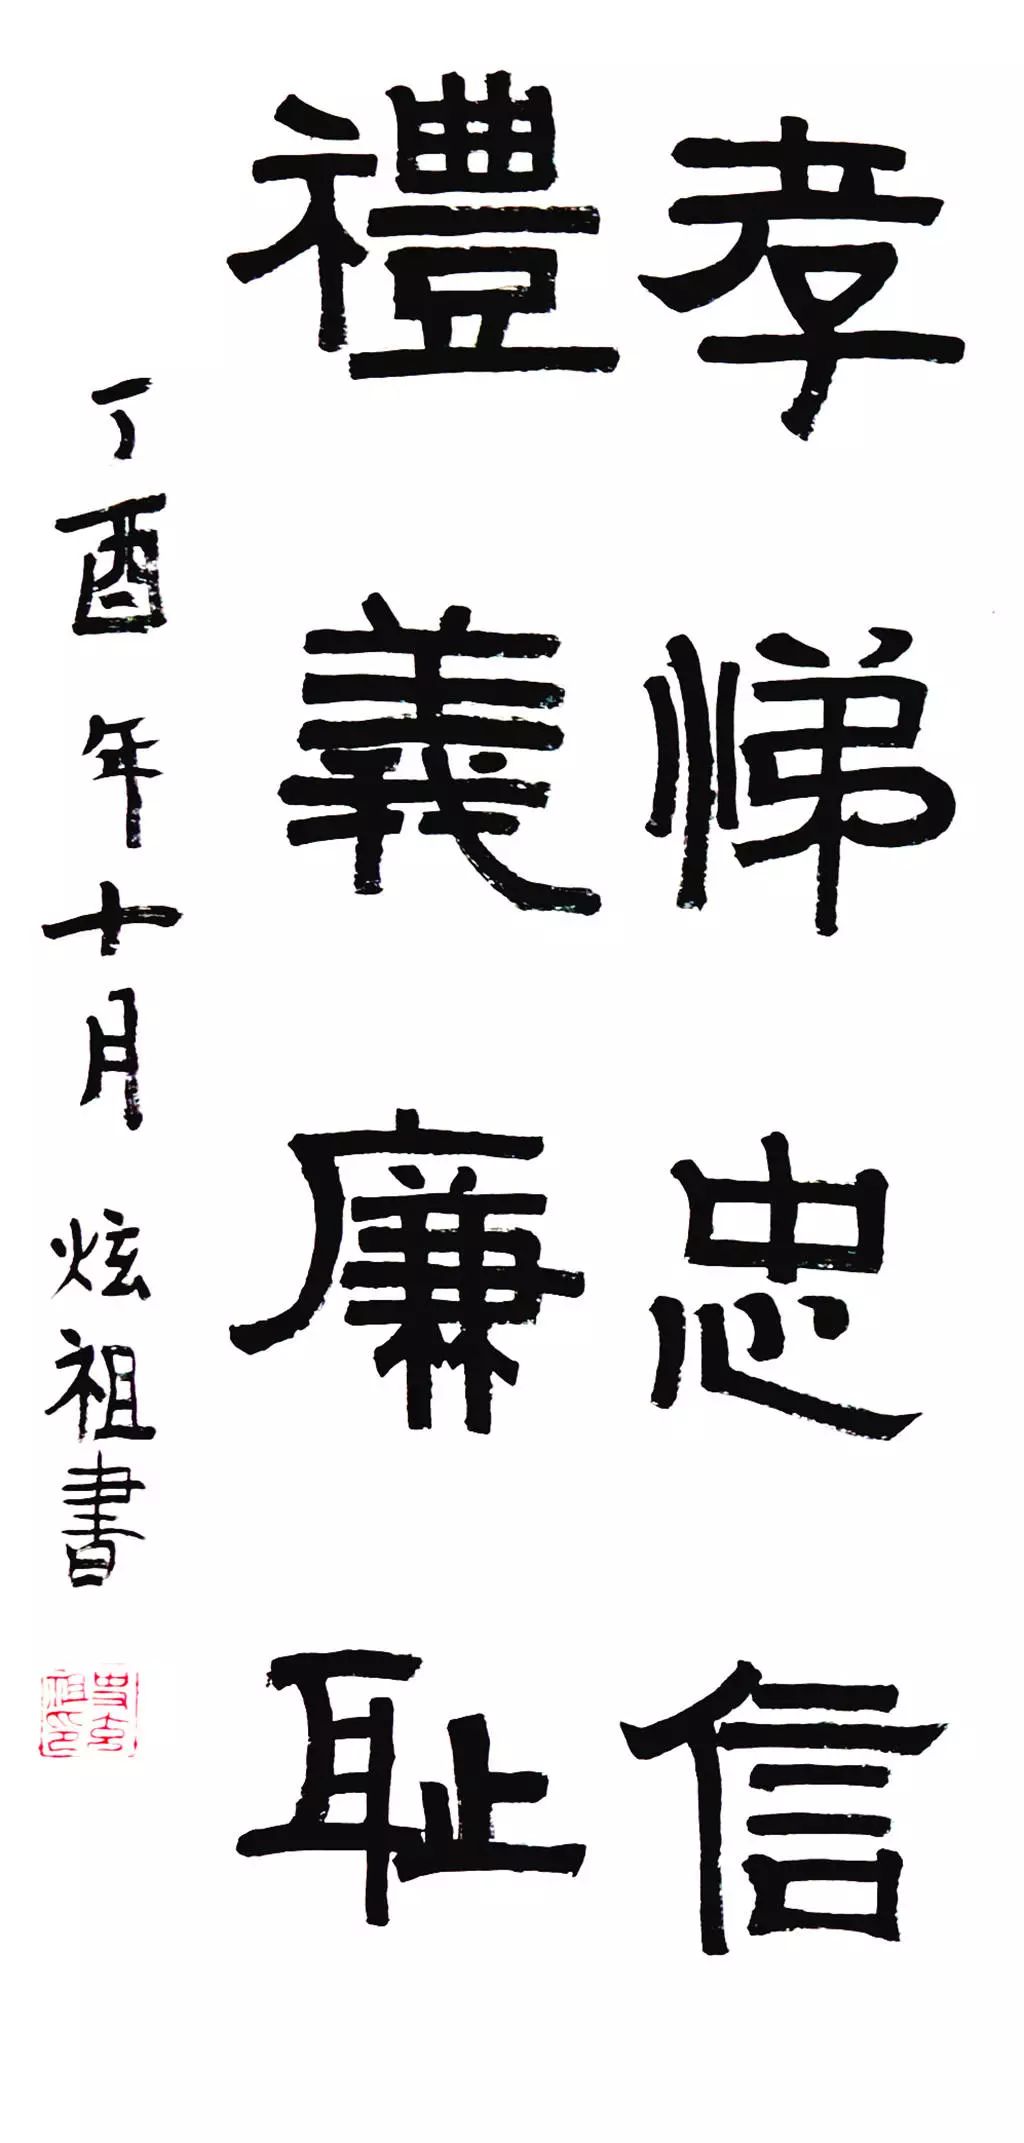 孝悌忠信
禮義廉耻
丁酉年十月炫祖書